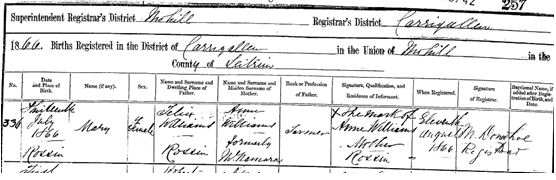 257
Superintendent Registrar's District Mohill Registrar's District Carrigallen
1866. Births Registered in the District of Carrigallen in the Union of Mohill
County of Leitrim
No. Date and Place of Birth. Name (if any). Sex. Name and Surname and Dwelling Place of Father. Name and Surname and Maiden Surname of Mother. Rank or Profession of Father. Signature, Qualification, and Residence of Informant. When Registered. Signature of Registrar. Baptismal Name, if added after Registration of Birth, and Date.
Thirteenth Felix Anne X The mark of Eleventh
336 July Mary Female Williams Williams Farmer Anne Williams August M. Donohoe
1866 formerly Mother 1866 Registrar
Rossin Rossin McNamara Rossin